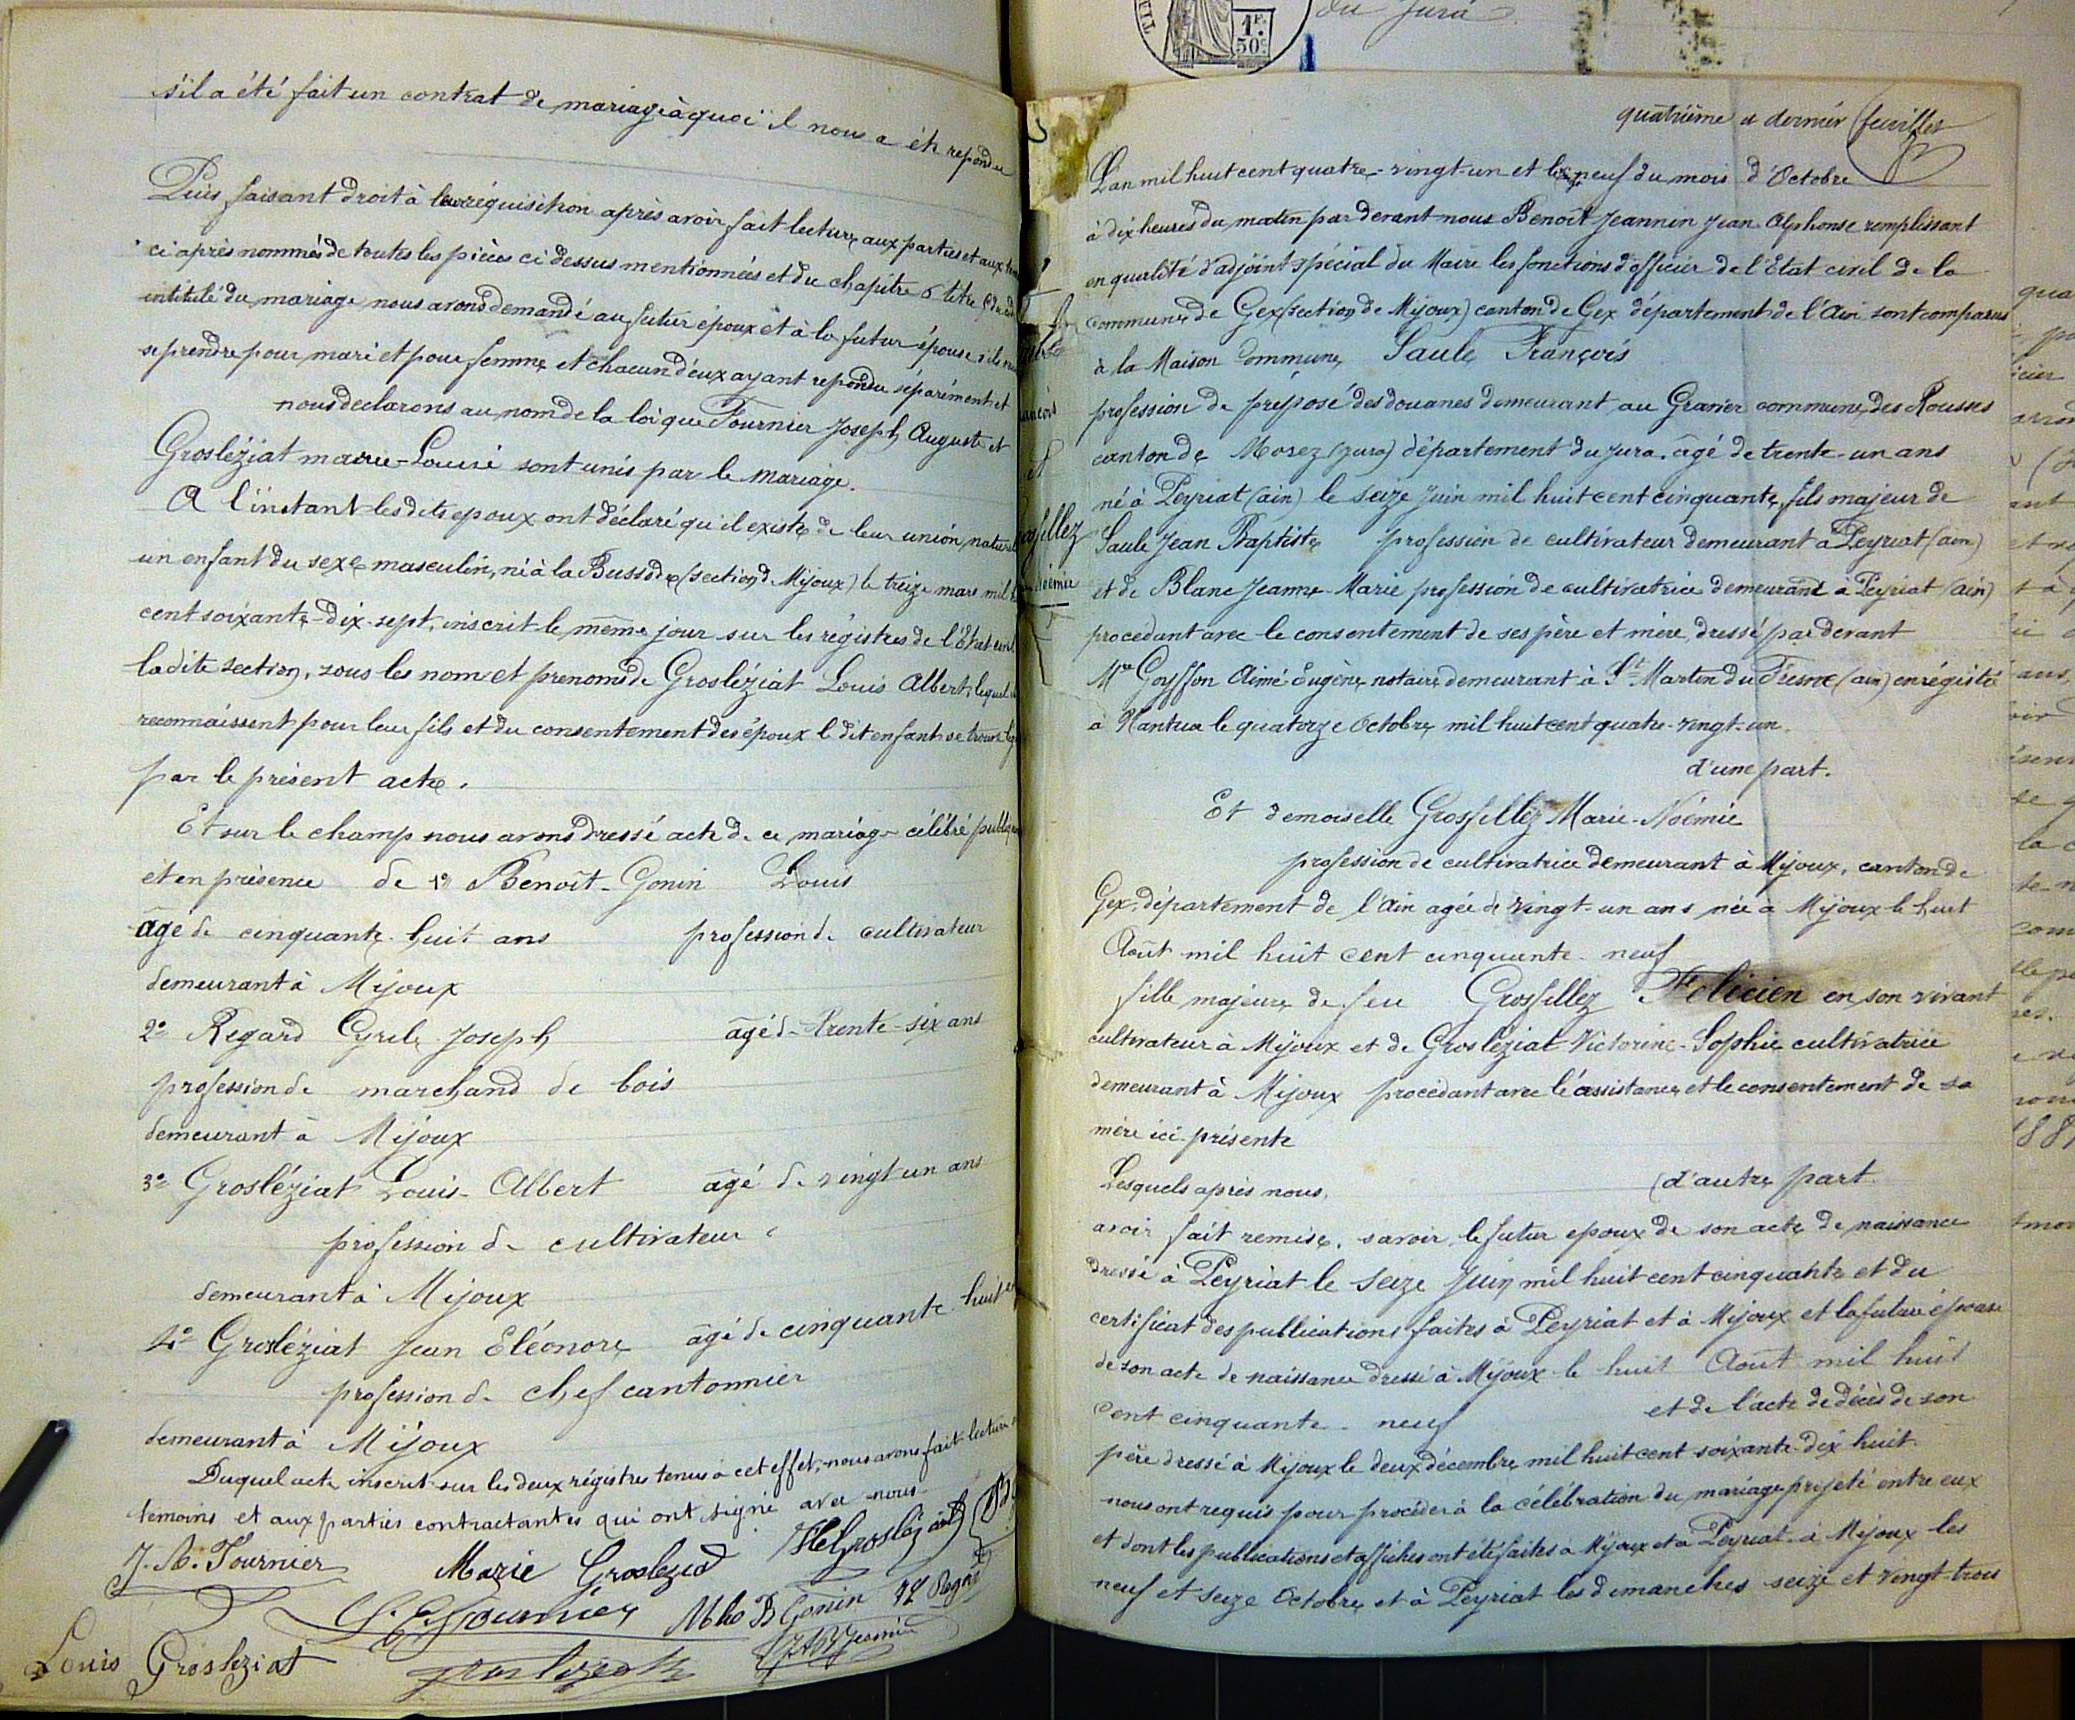 s'il a été fait un contrat de mariage à quoi il nous a été repondu
Puis faisant droit à leur réquisition après avoir fait lecture aux parties et aux
ci après nommés de toutes les pièces ci dessus mentionnées et du chapitre 6 titre
intitulé du mariage nous avons demandé au futur époux et à la futur épouse s'ils
se prendre pour mari et pour femme et chacun d'eux ayant repondu séparément et
nous declarons au nom de la loi que Fournier Joseph Auguste et
Grosléziat marie-Louise sont unis par le mariage.
A l'instant les dits epoux ont déclaré qu'il existe de leur union naturel
un enfant du sexe masculin, né à la (section de Mijoux) le treize mars mil
cent soixante-dix-sept, inscrit le même jour sur les régistres de l'Etat civil
ladite section, sous les nom et prenoms de Grosléziat Louis Albert, lequel
reconnaissent pour leur fils et du consentement des époux le dit enfant se trouve
par le présent acte.
Et sur le champ nous avons dressé acte de ce mariage célébré
et en présence de 1° Benoît-Gonin Louis
âgé de cinquante-huit ans profession de cultivateur
demeurant à Mijoux
2° Regard Cyrile Joseph âgé de trente-six ans
profession de marchand de bois
demeurant à Mijoux
3° Grosléziat Louis-Albert âgé de vingt un ans
profession de cultivateur
demeurant à Mijoux
4° Grosléziat Jean Eléonore âgé de cinquante-huit
profession de chef cantonnier
demeurant à Mijoux
Duquel acte inscrit sur les deux régistres tenus à cet effet, nous avons fait lecture
temoins et aux parties contractantes qui ont signé avec nous
J. A. Fournier Marie Grosleziat
Fournier Gonin Regard
Louis Grosleziat
du Jura
1F. 50c.
quatrième et dernier feuillet
L'an mil huit cent quatre-vingt-un et le neuf du mois d'Octobre
à dix heures du matin par devant nous Benoît Jeannin Jean Alphonse remplissant
en qualité d'adjoint spécial du Maire les fonctions d'officier de l'Etat civil de la
commune de Gex (section de Mijoux) canton de Gex département de l'Ain sont comparus
à la Maison Commune, Saule François
profession de préposé des douanes demeurant au Gravier commune des Rousses
canton de Morez (jura) département du jura. âgé de trente-un ans
né à Peyriat (ain) le seize juin mil huit cent cinquante, fils majeur de
Saule Jean Baptiste profession de cultivateur demeurant à Peyriat (ain)
et de Blanc Jeanne-Marie profession de cultivatrice demeurant à Peyriat (ain)
procedant avec le consentement de ses père et mère, dressé par devant
Me Goyffon Aimé Eugène notaire demeurant à St Martin du Fresne (ain) enrégistré
à Nantua le quatorze Octobre mil huit cent quatre-vingt-un.
d'une part.
Et demoiselle Grosfillez Marie-Noémie
profession de cultivatrice demeurant à Mijoux, canton de
Gex, département de l'ain agée de vingt-un ans née à Mijoux le huit
Août mil huit cent cinquante-neuf
fille majeure de feu Grosfillez Félicien en son vivant
cultivateur à Mijoux et de Grosléziat Victorine-Sophie cultivatrice
demeurant à Mijoux procedant avec l'assistance et le consentement de sa
mère ici présente
Lesquels après nous, d'autre part.
avoir fait remise, savoir, le futur epoux de son acte de naissance
dressé à Peyriat le seize Juin mil huit cent cinquante et du
certificat des publications faites à Peyriat et à Mijoux et la future épouse
de son acte de naissance dressé à Mijoux le huit Août mil huit
cent cinquante-neuf et de l'acte de décès de son
père dressé à Mijoux le deux décembre mil huit cent soixante-dix huit.
nous ont requis pour procéder à la célébration du mariage projeté entre eux
et dont les publications et affiches ont été faites à Mijoux et à Peyriat. à Mijoux les
neuf et seize Octobre et à Peyriat les dimanches seize et vingt-trois